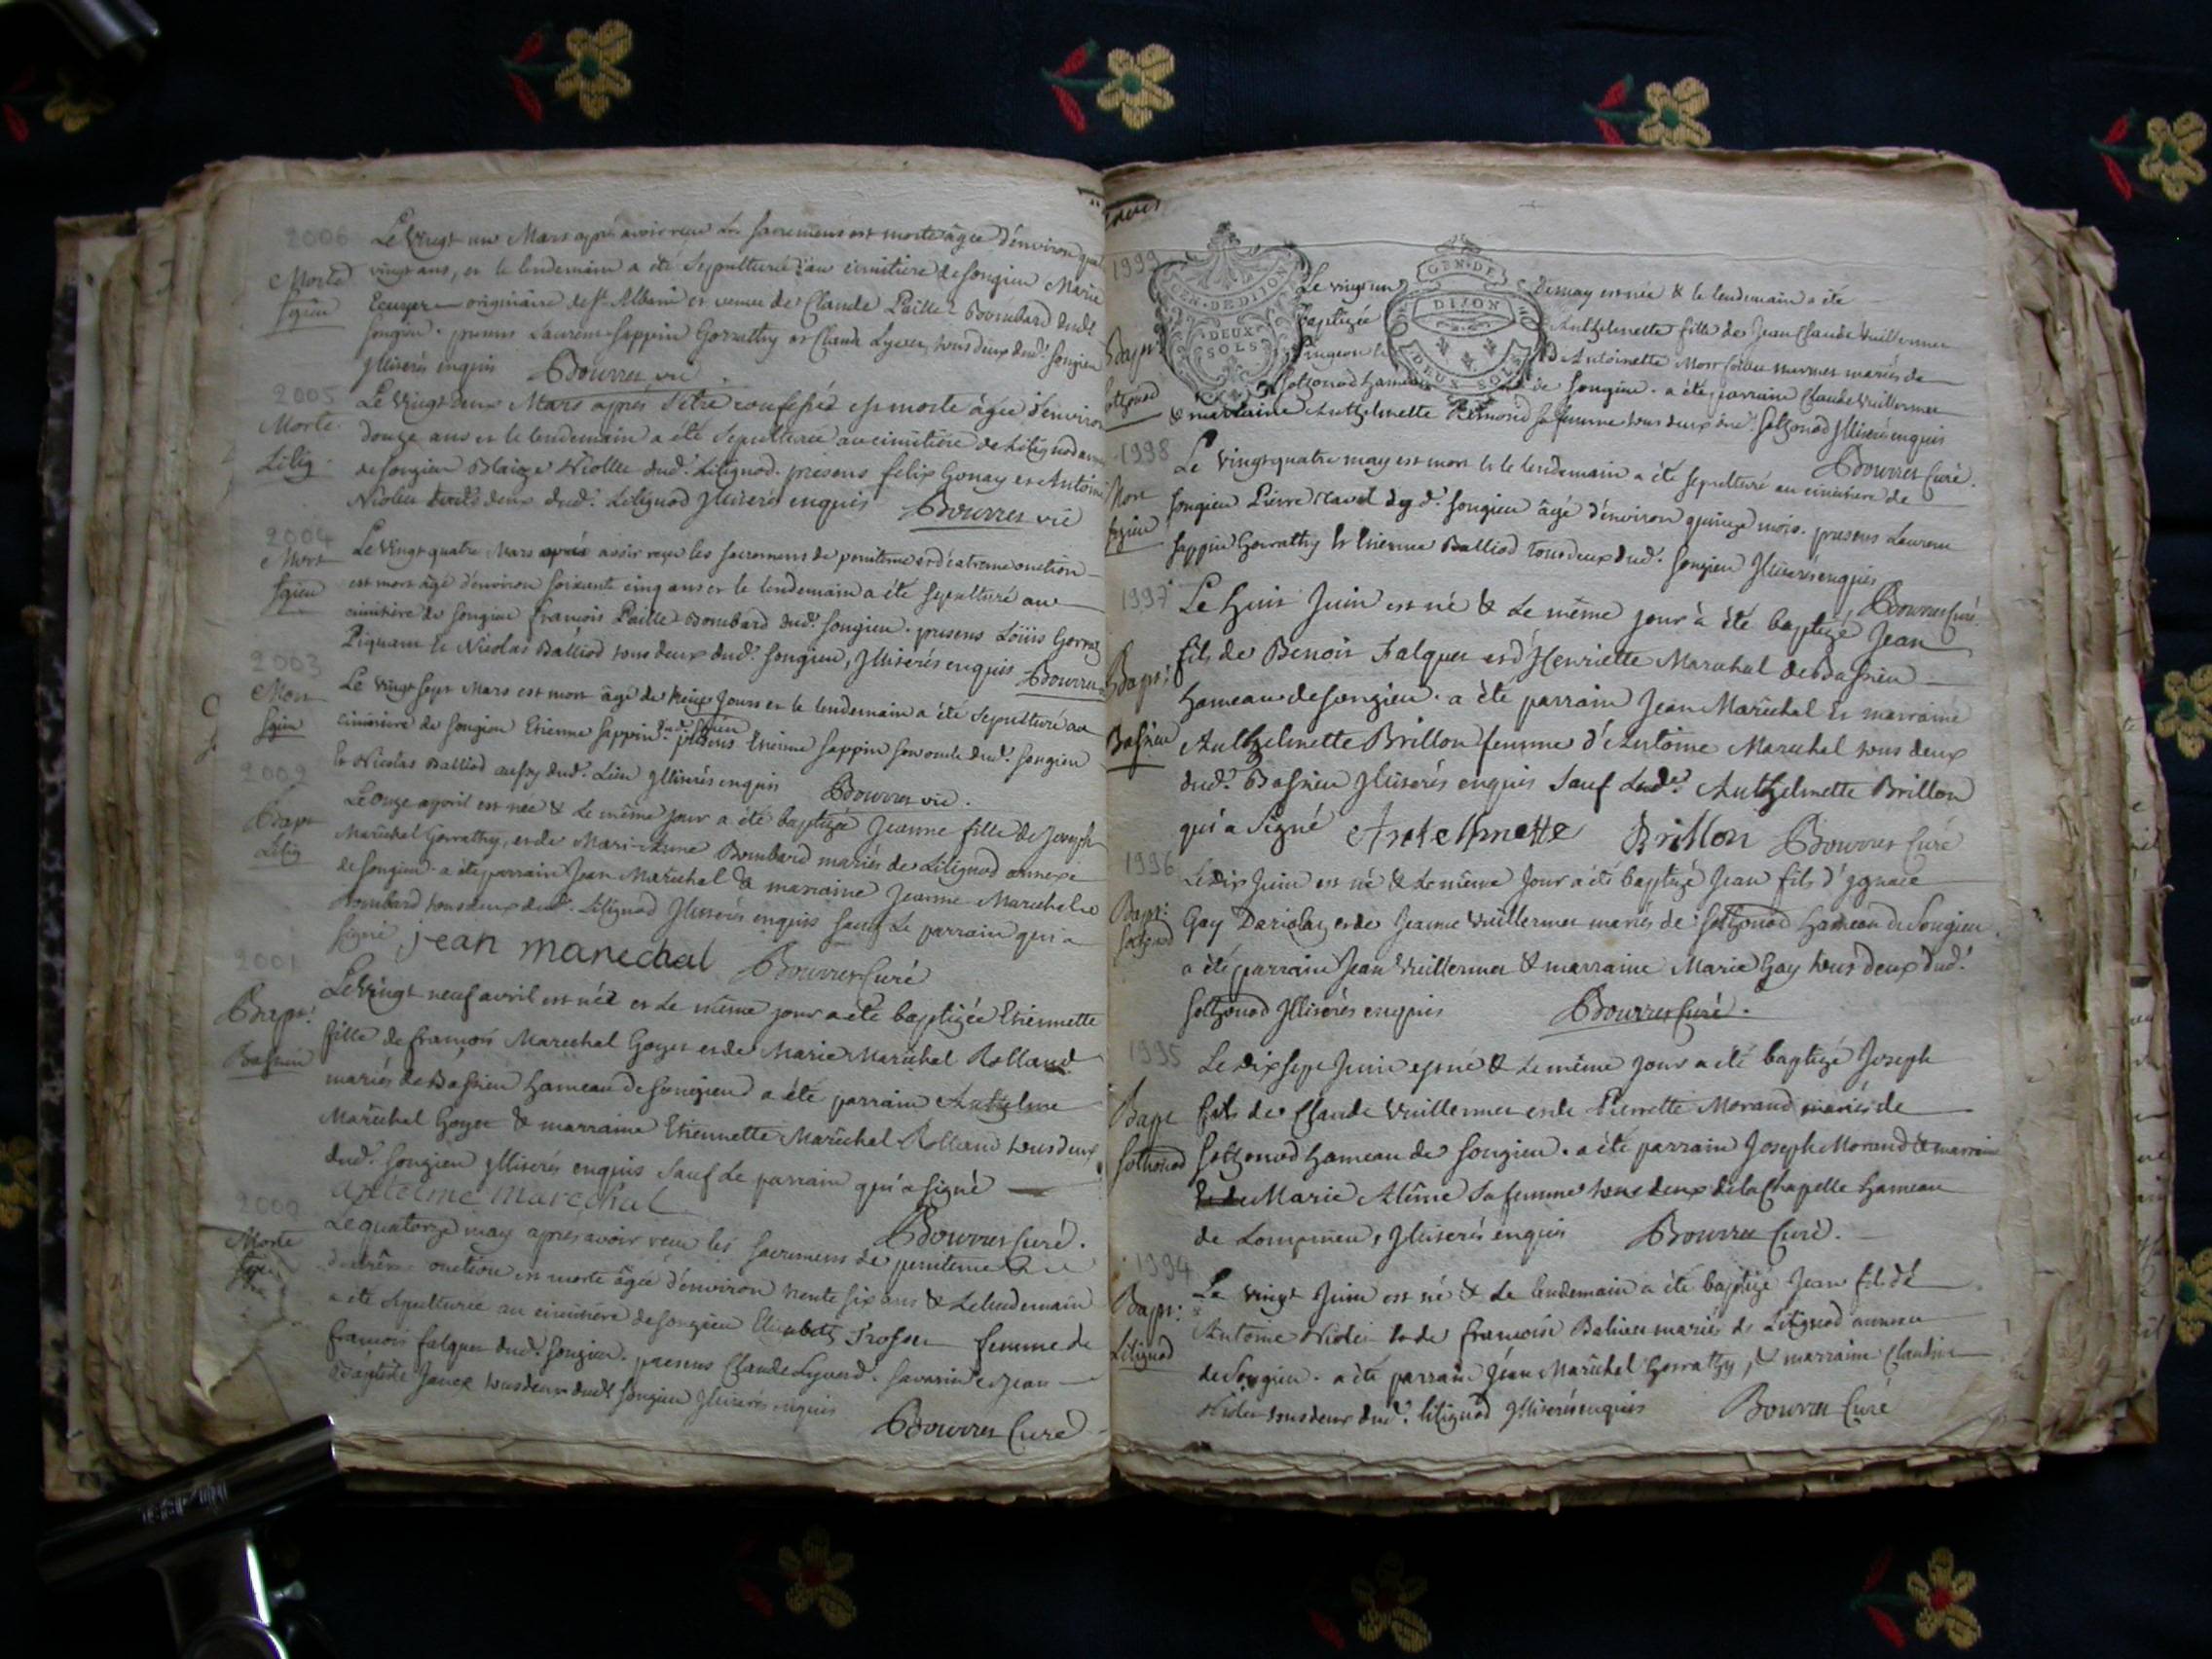 2006
Le vingt un Mars après avoir reçu les sacremens est morte âgée d'environ
Morte vingt ans, et le lendemain a été sépulturée au cimitière de songieu Marie
sgieu originaire de St Albain et venue de Claude Paille Bombard dud.
songieu. presens Laurent sappin Gorrathy et Claude tous deux dud. songieu
illiterés enquis Bourret vic
2005
Le vingt deux Mars après s'etre confessée est morte âgée d'environ
Morte
douze ans et le lendemain a été sepulturée au cimitière de Litignod
Litig. de songieu Blaize dud. Litignod. presens felix Gonay et Antoine
deux dud. Litignod illiterés enquis Bourret vic
2004
Mort Le vingt quatre Mars après avoir reçu les sacremens de penitence et d'extreme onction
sgieu est mort âgé d'environ soixante cinq ans et le lendemain a été sepulturé au
cimitière de songieu françois Paille Bombard dud. songieu. presens Loüis Gorraz
Piquant & Nicolas Balliod tous deux dud. songieu, illiterés enquis Bourret
2003
Mort Le vingt sept Mars est mort âgé de jours et le lendemain a été sepulturé au
sgieu cimitière de songieu Etienne sappin presens Etienne sappin son oncle dud. songieu
& Nicolas Balliod aussy dud. Lieu illiterés enquis Bourret vic.
2002
Le onze avril est née & le même jour a été baptizée Jeanne fille de Joseph
Bapt Maréchal Gorrathy, et de Marianne Bombard mariés de Litignod annexe
Litig de songieu. a été parrain Jean Maréchal & marraine Jeanne Maréchal
Bombard tous deux dud. Litignod illiterés enquis sauf le parrain qui a
signé jean marechal Bourret Curé
2001
Le vingt neuf avril est née et le même jour a été baptizée Etiennette
Bapt. fille de françois Marechal Goyet et de Marie Maréchal Rolland
Bassieu mariés de Bassieu hameau de songieu a été parrain Anthelme
Maréchal Goyet & marraine Etiennette Maréchal Rolland tous deux
dud. songieu illiterés enquis sauf le parrain qui a signé
antelme marechal
Bourret Curé.
2000
Morte Le quatorze may après avoir reçu les sacremens de penitence
onction est morte âgée d'environ trente six ans & le lendemain
a été sepulturée au cimitière de songieu Elizabeth femme de
françois falquet dud. songieu. presens Claude & Jean
Baptiste tous deux dud. songieu illiterés enquis
Bourret Curé
1999
GEN. DE DIJON
DEUX SOLS
GEN. DE
DIJON
DEUX SOLS
Le vingt un de may est née & le lendemain a été
baptizée Anthelmette fille de Jean Claude Vuillermet
Bapt. Antoinette mariés de
sothonod hameau de songieu. a été parrain Claude Vuillermet
& marraine Anthelmette Remond sa femme tous deux dud. sothonod illiterés enquis
Bourret Curé.
1998
Le vingt quatre may est mort & le lendemain a été sepulturé au cimitière de
Mort songieu Pierre dud. songieu âgé d'environ quinze mois. presens Laurent
sgieu sappin Gorrathy & Etienne Balliod tous deux dud. songieu illiterés enquis
Bourret Curé.
1997
Le huit Juin est né & le même jour à été baptizé Jean
Bapt. fils de Benoit Falquet et d'Henriette Maréchal de Bassieu
hameau de songieu. a été parrain Jean Maréchal & marraine
Bassieu Anthelmette Brillon femme d'Antoine Maréchal tous deux
dud. Bassieu illiterés enquis sauf lad. Anthelmette Brillon
qui a signé Antelhmette Brillon Bourret Curé
1996
Le dix Juin est né & le même Jour a été baptizé Jean fils d'ygnace
Bapt. Gay et de Jeanne Vuillermet mariés de sothonod hameau de songieu.
sothnod a été parrain Jean Vuillermet & marraine Marie Gay tous deux dud.
sothonod illiterés enquis Bourret Curé.
1995
Le dix sept Juin est né & le même jour a été baptizé Joseph
Bapt fils de Claude Vuillermet et de Pierrette Morand mariés de
sothonod sothonod hameau de songieu. a été parrain Joseph Morand & marraine
Marie sa femme tous deux de la Chapelle hameau
de Lompnieu, illiterés enquis Bourret Curé.
1994
Le vingt Juin est né & le lendemain a été baptizé Jean fils de
Bapt: Antoine & de françoise mariés de Litignod annexe
Litignod de songieu. a été parrain Jean Maréchal Gorrathy, & marraine Claudine
tous deux dud. litignod illiterés enquis Bourret Curé